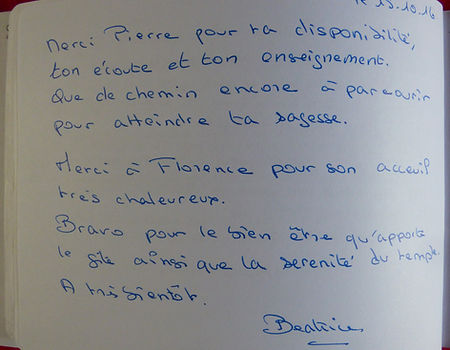 le 15.10.16
Merci Pierre pour ta disponibilité,
ton écoute et ton enseignement.
Que de chemin encore à parcourir
pour atteindre ta sagesse.
Merci à Florence pour son acceuil
très chaleureux.
Bravo pour le bien être qu'apporte
le gîte ainsi que la serenité du temple.
A très bientôt.
Beatrice